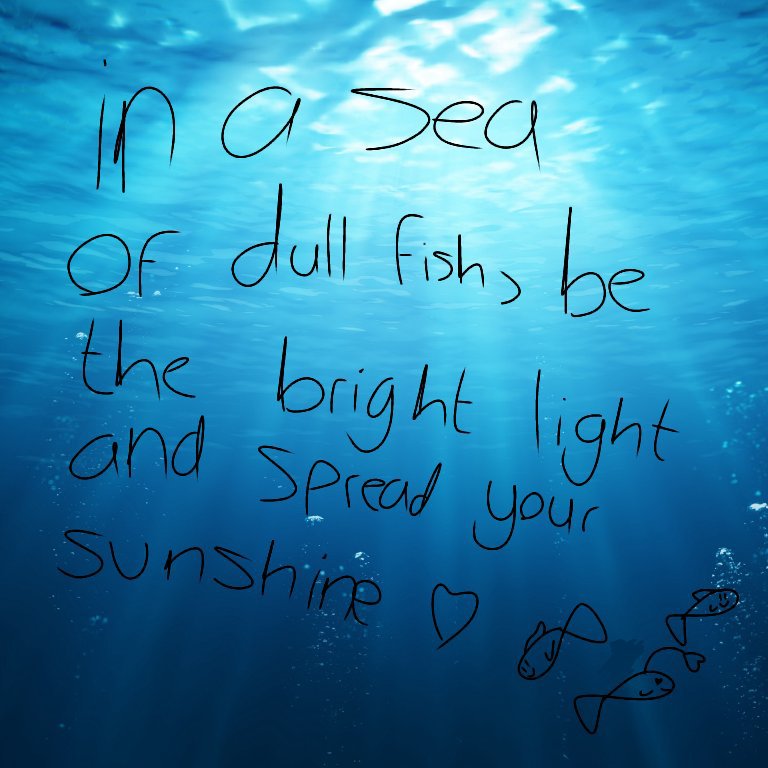 in a sea
of dull fish, be
the bright light
and spread your
sunshine ♡